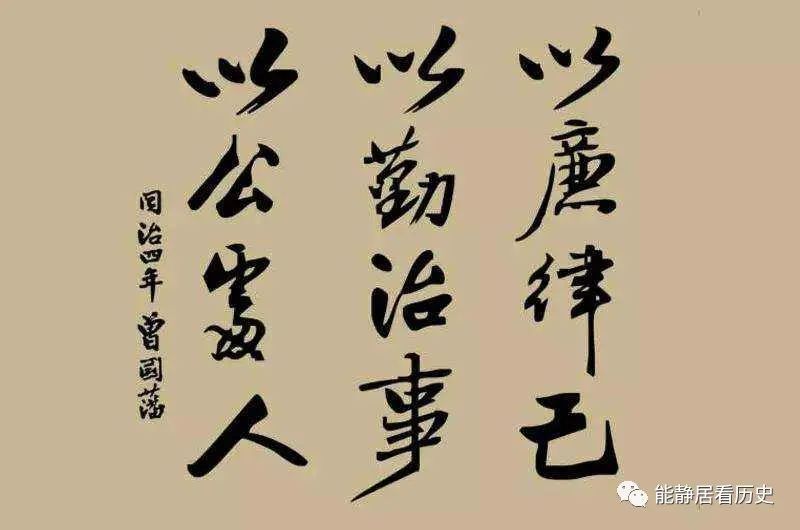 以廉律己
以勤治事
以公處人
同治四年 曾國藩
能静居看历史